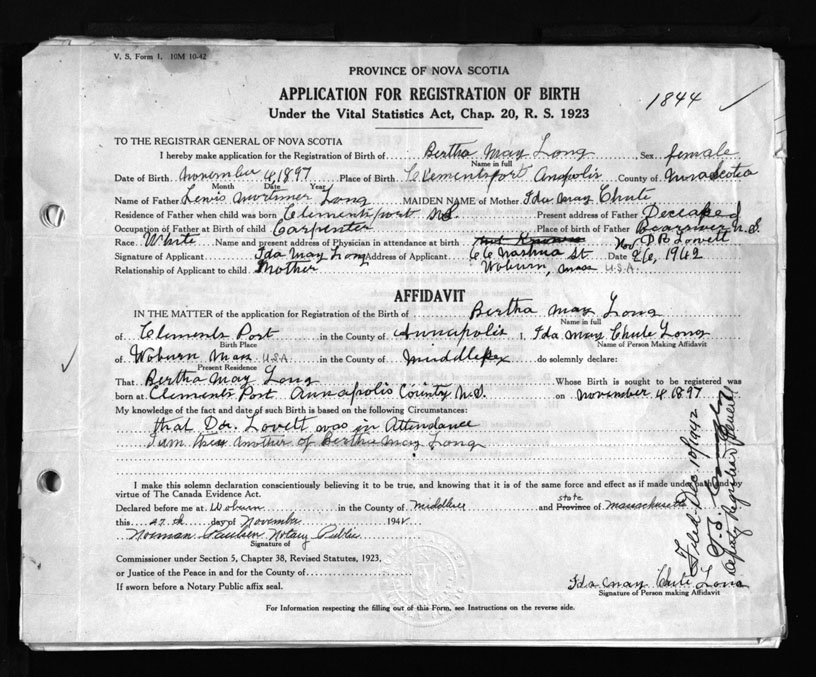 V. S. Form 1. 10M 10-42
PROVINCE OF NOVA SCOTIA
APPLICATION FOR REGISTRATION OF BIRTH
1844
Under the Vital Statistics Act, Chap. 20, R. S. 1923
TO THE REGISTRAR GENERAL OF NOVA SCOTIA
I hereby make application for the Registration of Birth of Bertha May Long Sex female
Name in full
Date of Birth November 4, 1897 Place of Birth Clementsport Annapolis County of Nova Scotia
Month Date Year
Name of Father Lewis Mortimer Long MAIDEN NAME of Mother Ida May Chute
Residence of Father when child was born Clementsport N.S. Present address of Father Deceased
Occupation of Father at Birth of child Carpenter Place of birth of Father N.S.
Race White Name and present address of Physician in attendance at birth Lovett
Signature of Applicant Ida May Long Address of Applicant 66 Nashua St Date 26, 1942
Relationship of Applicant to child Mother Woburn, Mass U.S.A.
AFFIDAVIT
IN THE MATTER of the application for Registration of the Birth of Bertha May Long
Name in full
of Clements Port in the County of Annapolis I, Ida May Chute Long
Birth Place Name of Person Making Affidavit
of Woburn Mass U.S.A. in the County of Middlesex do solemnly declare:
Present Residence
That Bertha May Long Whose Birth is sought to be registered was
born at Clements Port Annapolis County N.S. on November 4, 1897
My knowledge of the fact and date of such Birth is based on the following Circumstances:
that Dr. Lovett was in Attendance
I am the mother of Bertha May Long
I make this solemn declaration conscientiously believing it to be true, and knowing that it is of the same force and effect as if made under oath and by
virtue of The Canada Evidence Act.
state
Declared before me at Woburn in the County of Middlesex and Province of Massachusetts
this 27th day of November 1942
Norman Notary Public
Signature of
Commissioner under Section 5, Chapter 38, Revised Statutes, 1923,
or Justice of the Peace in and for the County of
If sworn before a Notary Public affix seal.
Ida May Chute Long
Signature of Person making Affidavit
For Information respecting the filling out of this Form, see Instructions on the reverse side.
Filed Dec 10/1942
Deputy Registrar General